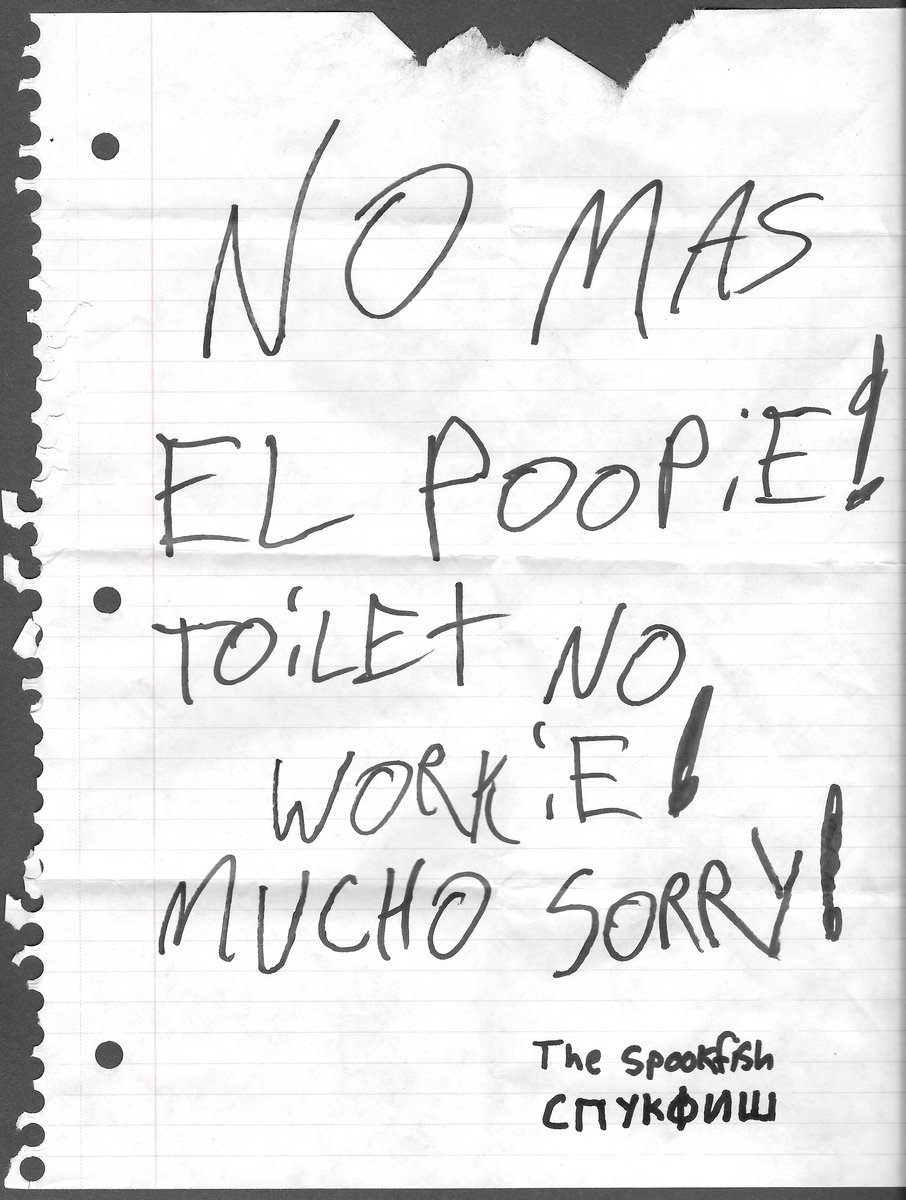 NO MAS
EL POOPiE!
TOiLET NO
WORKiE!
MUCHO SORRY!
The Spookfish
СПУКФИШ